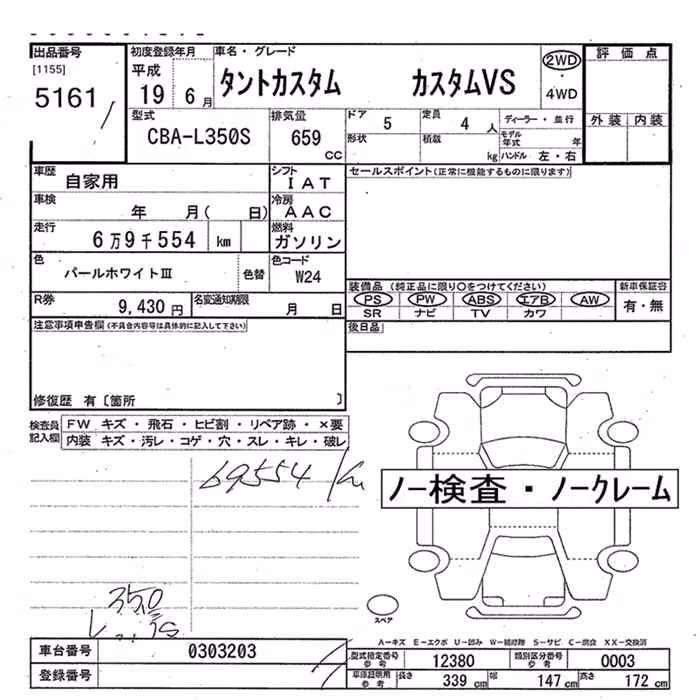 出品番号 初度登録年月 車名・グレード 評価点
[1155] 平成 タントカスタム カスタムVS 2WD
5161 19 6月 ・ 4WD
型式 排気量 ドア 5 定員 4人 ディーラー・並行 外装 内装
CBA-L350S 659 cc 形状 積載 kg モデル年式 年
ハンドル 左・右
車歴 自家用 シフト IAT セールスポイント(正常に機能するものに限ります)
車検 年 月( 日) 冷房 AAC
走行 6万9千554 km 燃料 ガソリン
色 パールホワイトⅢ 色替 色コード W24
装備品 (純正品に限り○をつけてください) 新車保証書
R券 9,430円 名変通知期限 月 日 PS PW ABS エアB AW 有・無
SR ナビ TV カワ
注意事項申告欄(不具合内容等は具体的に記入して下さい) 後日品
修復歴 有〔箇所 〕
検査員記入欄 FW キズ・飛石・ヒビ割・リペア跡・×要
内装 キズ・汚レ・コゲ・穴・スレ・キレ・破レ
69554 Km
ノー検査・ノークレーム
350
スペア
A-キズ E-エクボ U-凹み W-補修跡 S-サビ C-腐食 XX-交換済
車台番号 0303203 型式指定番号 参考 12380 類別区分番号 参考 0003
登録番号 車庫証明用 参考 長さ 339 cm 幅 147 cm 高さ 172 cm